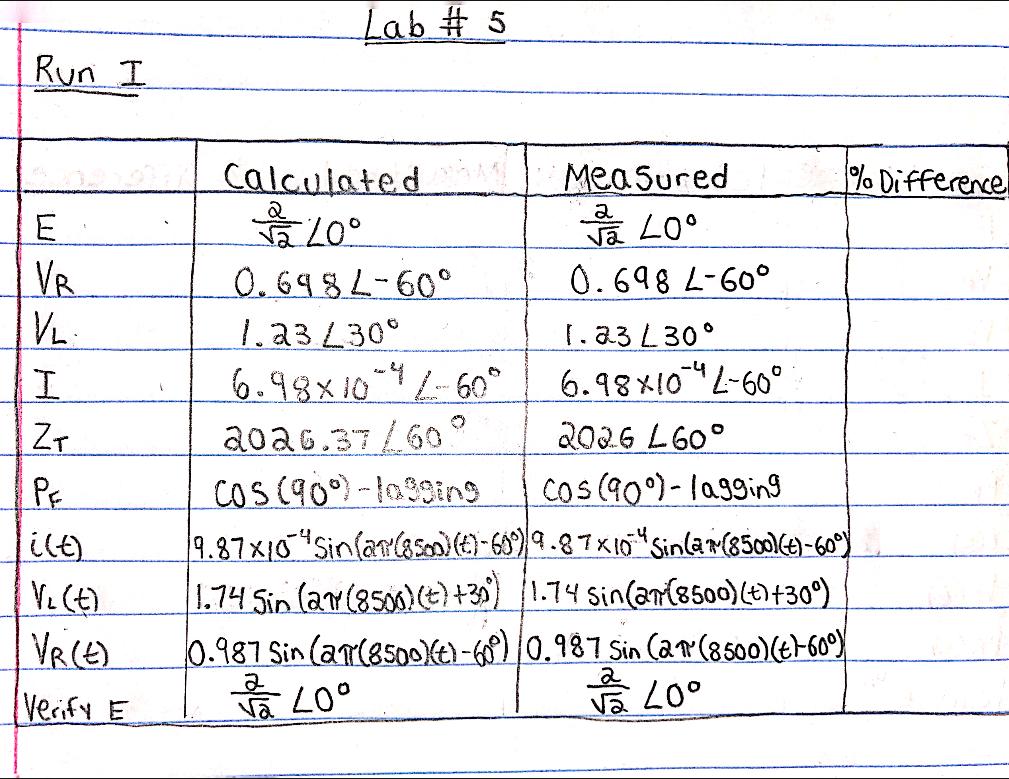 Lab # 5
Run I
Calculated Measured % Difference
E 2/√2 ∠0° 2/√2 ∠0°
VR 0.698 ∠-60° 0.698 ∠-60°
VL 1.23 ∠30° 1.23 ∠30°
I 6.98×10⁻⁴ ∠-60° 6.98×10⁻⁴ ∠-60°
ZT 2026.37 ∠60° 2026 ∠60°
PF cos(90°)-lagging cos(90°)-lagging
i(t) 9.87×10⁻⁴ sin(2π(8500)(t)-60°) 9.87×10⁻⁴ sin(2π(8500)(t)-60°)
VL(t) 1.74 sin(2π(8500)(t)+30°) 1.74 sin(2π(8500)(t)+30°)
VR(t) 0.987 sin(2π(8500)(t)-60°) 0.987 sin(2π(8500)(t)-60°)
Verify E 2/√2 ∠0° 2/√2 ∠0°